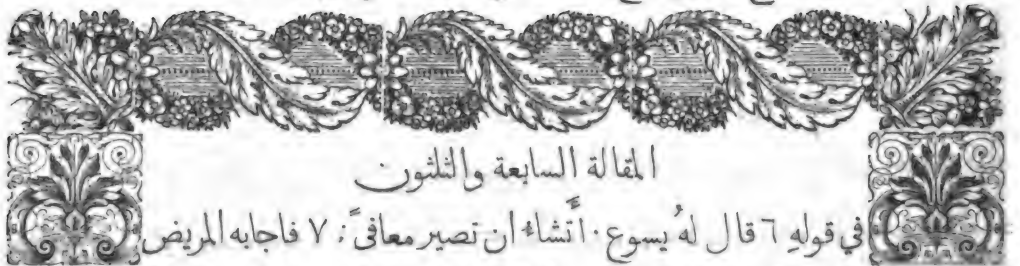 المقالة السابعة والثلثون
في قولهِ ٦ قال لهُ يسوع · أَتشاءُ ان تصير معافىً ؛ ٧ فاجابه المريض